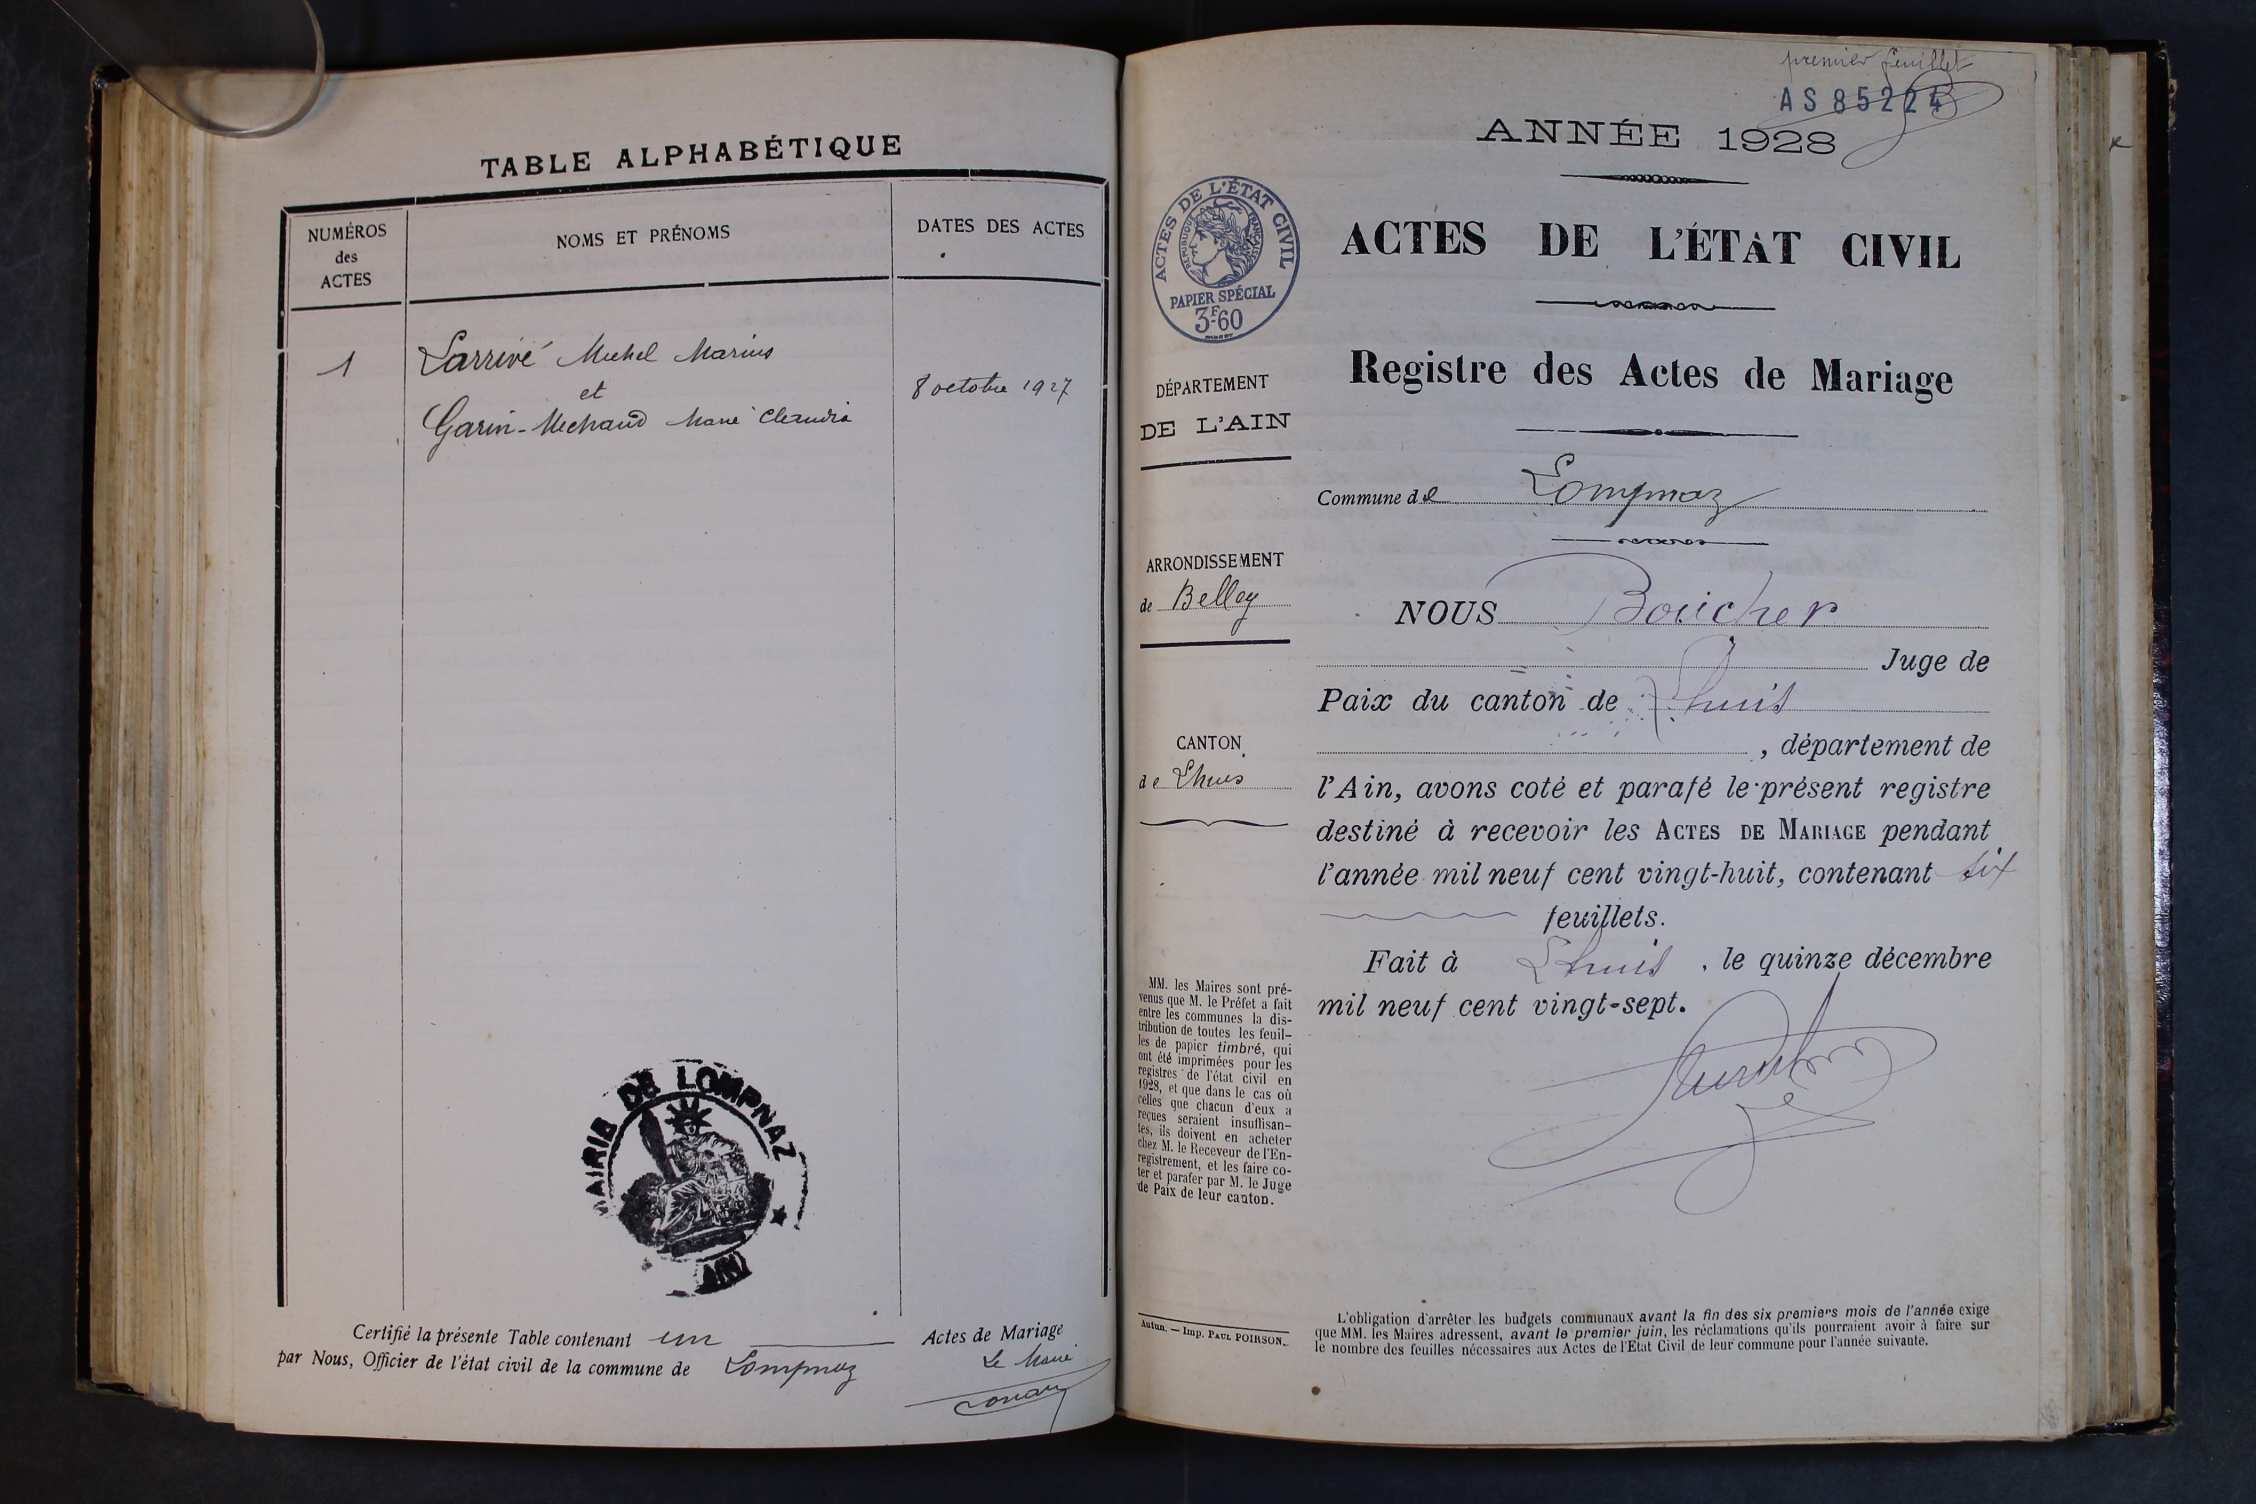 TABLE ALPHABÉTIQUE
NUMÉROS
des
ACTES
NOMS ET PRÉNOMS
DATES DES ACTES
1
Larrivé Michel Marius
et
Garin-Michaud Marie Claudia
8 octobre 1927
MAIRIE DE LOMPNAZ
AIN
Certifié la présente Table contenant un Actes de Mariage
par Nous, Officier de l'état civil de la commune de Lompnaz
Le Maire
premier feuillet
AS 85224
ANNÉE 1928
ACTES DE L'ÉTAT CIVIL
RÉPUBLIQUE FRANÇAISE
PAPIER SPÉCIAL
3F60
ACTES DE L'ÉTAT CIVIL
Registre des Actes de Mariage
DÉPARTEMENT
DE L'AIN
Commune de Lompnaz
ARRONDISSEMENT
de Belley
CANTON
de Lhuis
NOUS Boucher
Juge de
Paix du canton de Lhuis
, département de
l'Ain, avons coté et parafé le présent registre
destiné à recevoir les ACTES DE MARIAGE pendant
l'année mil neuf cent vingt-huit, contenant six
feuillets.
Fait à Lhuis, le quinze décembre
mil neuf cent vingt-sept.
MM. les Maires sont pré-
venus que M. le Préfet a fait
entre les communes la dis-
tribution de toutes les feuil-
les de papier timbré, qui
ont été imprimées pour les
registres de l'état civil en
1928, et que dans le cas où
celles que chacun d'eux a
reçues seraient insuffisan-
tes, ils doivent en acheter
chez M. le Receveur de l'En-
registrement, et les faire co-
ter et parafer par M. le Juge
de Paix de leur canton.
Autun. — Imp. PAUL POIRSON.
L'obligation d'arrêter les budgets communaux avant la fin des six premiers mois de l'année exige
que MM. les Maires adressent, avant le premier juin, les réclamations qu'ils pourraient avoir à faire sur
le nombre des feuilles nécessaires aux Actes de l'Etat Civil de leur commune pour l'année suivante.